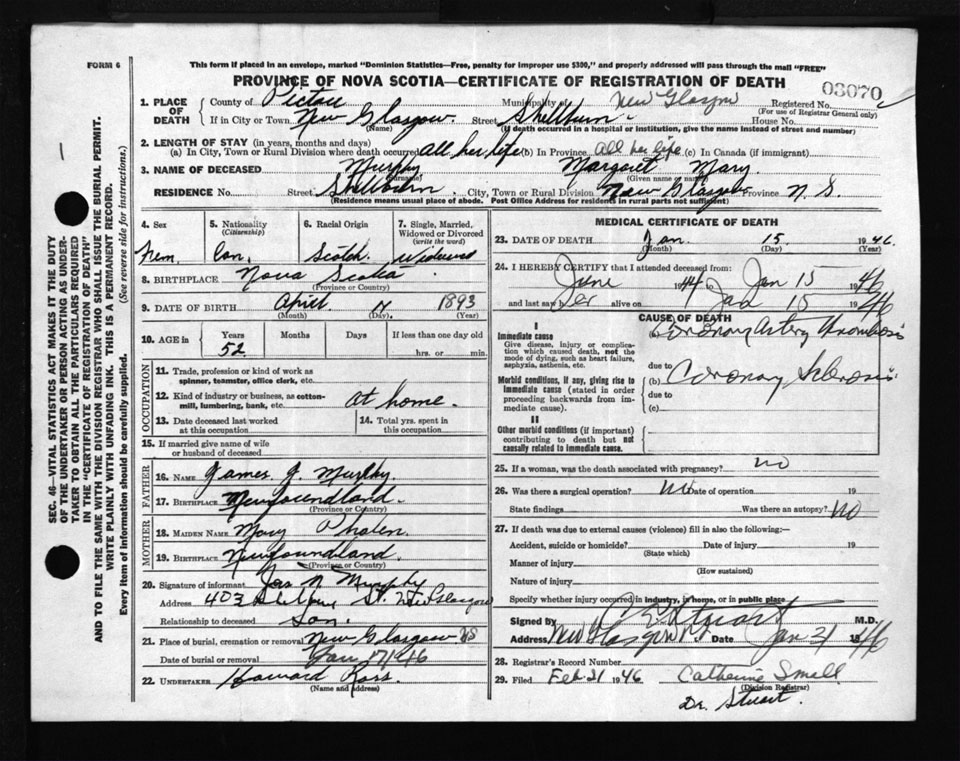 FORM 6
This form if placed in an envelope, marked "Dominion Statistics—Free, penalty for improper use $300," and properly addressed will pass through the mail "FREE"
PROVINCE OF NOVA SCOTIA—CERTIFICATE OF REGISTRATION OF DEATH
03070
1. PLACE OF DEATH
County of Pictou Municipality of New Glasgow Registered No.
(For use of Registrar General only)
If in City or Town New Glasgow. Street Shellburn House No.
(Name) (If death occurred in a hospital or institution, give the name instead of street and number)
2. LENGTH OF STAY (in years, months and days)
(a) In City, Town or Rural Division where death occurred all her life (b) In Province all her life (c) In Canada (if immigrant)
3. NAME OF DECEASED Murphy Margaret Mary.
(Surname) (Given name or names)
RESIDENCE No. Street Shellburn. City, Town or Rural Division New Glasgow Province N. S.
(Residence means usual place of abode. Post Office Address for residents in rural parts not sufficient)
4. Sex
Fem.
5. Nationality
(Citizenship)
Can.
6. Racial Origin
Scotch.
7. Single, Married, Widowed or Divorced
(write the word)
Widowed
8. BIRTHPLACE Nova Scotia
(Province or Country)
9. DATE OF BIRTH April 1893
(Month) (Day) (Year)
10. AGE in
Years Months Days If less than one day old
52 hrs. or min.
OCCUPATION
11. Trade, profession or kind of work as
spinner, teamster, office clerk, etc.
12. Kind of industry or business, as cotton-
mill, lumbering, bank, etc. At home.
13. Date deceased last worked
at this occupation
14. Total yrs. spent in
this occupation
15. If married give name of wife
or husband of deceased
FATHER
16. NAME James J. Murphy.
17. BIRTHPLACE Newfoundland.
(Province or Country)
MOTHER
18. MAIDEN NAME Mary Phalen.
19. BIRTHPLACE Newfoundland.
(Province or Country)
20. Signature of informant Jas N Murphy
Address 403 St. New Glasgow
Relationship to deceased Son.
21. Place of burial, cremation or removal New Glasgow NS
Date of burial or removal Jan 17/46
22. UNDERTAKER Howard Ross.
(Name and address)
MEDICAL CERTIFICATE OF DEATH
23. DATE OF DEATH Jan. 15 1946.
(Month) (Day) (Year)
24. I HEREBY CERTIFY that I attended deceased from:
June 1944 to Jan 15 1946
and last saw her alive on Jan 15 1946
CAUSE OF DEATH
I
Immediate cause
Give disease, injury or complica-
tion which caused death, not the
mode of dying, such as heart failure,
asphyxia, asthenia, etc.
(a) Coronary Artery Thrombosis
due to
Morbid conditions, if any, giving rise to
immediate cause (stated in order
proceeding backwards from im-
mediate cause).
(b) Coronary Sclerosis
due to
(c)
II
Other morbid conditions (if important)
contributing to death but not
causally related to immediate cause.
25. If a woman, was the death associated with pregnancy? no
26. Was there a surgical operation? No Date of operation 19
State findings Was there an autopsy? No
27. If death was due to external causes (violence) fill in also the following:—
Accident, suicide or homicide? Date of injury 19
(State which)
Manner of injury
(How sustained)
Nature of injury
Specify whether injury occurred in industry, in home, or in public place
Signed by Stuart M.D.
Address New Glasgow Date Jan 21 1946
28. Registrar's Record Number
29. Filed Feb 21 1946 Catherine Small
(Division Registrar)
Dr. Stuart.
SEC. 46—VITAL STATISTICS ACT MAKES IT THE DUTY
OF THE UNDERTAKER OR PERSON ACTING AS UNDER-
TAKER TO OBTAIN ALL THE PARTICULARS REQUIRED
IN THE "CERTIFICATE OF REGISTRATION OF DEATH"
AND TO FILE THE SAME WITH THE DIVISION REGISTRAR WHO SHALL ISSUE THE BURIAL PERMIT.
WRITE PLAINLY WITH UNFADING INK. THIS IS A PERMANENT RECORD.
Every item of information should be carefully supplied. (See reverse side for instructions.)